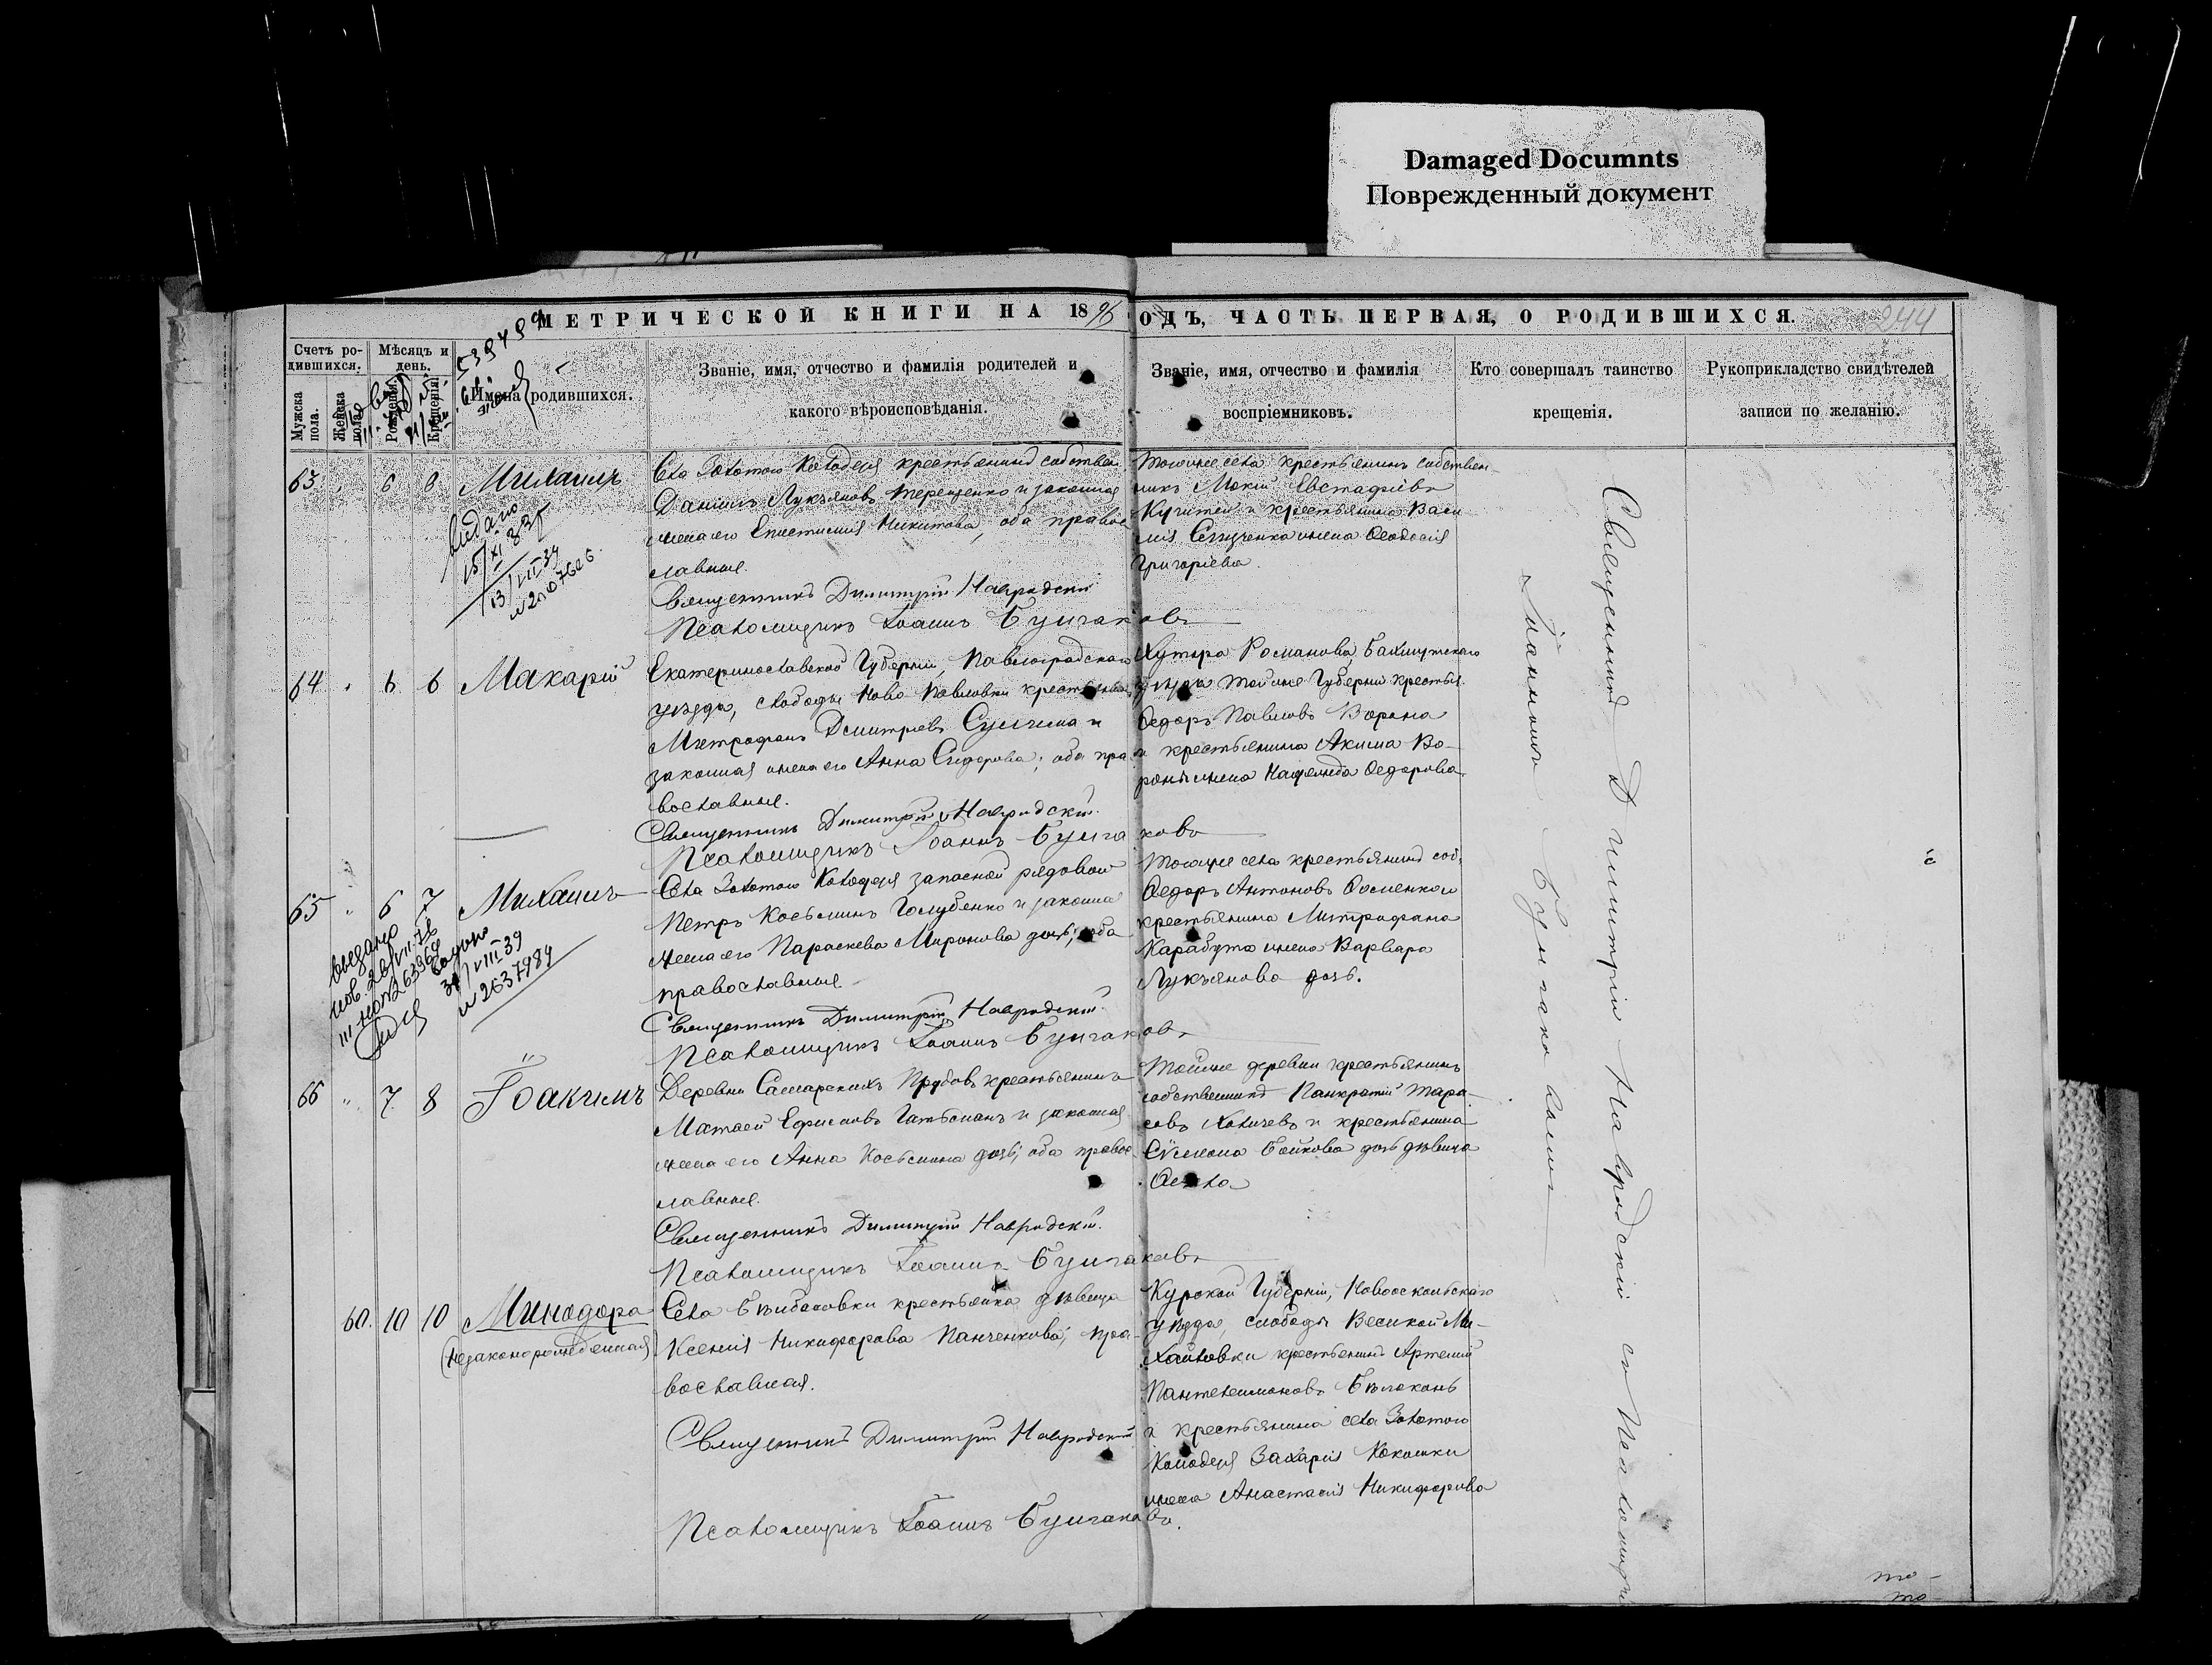 Damaged Documnts
Поврежденный документ
МЕТРИЧЕСКОЙ КНИГИ НА 1896 ОДЪ, ЧАСТЬ ПЕРВАЯ, О РОДИВШИХСЯ.
244
Счетъ ро-
дившихся.
Мужеска
пола.
Женска
пола.
Мѣсяцъ и
день.
Рожденія.
Крещенія.
Имена родившихся.
Званіе, имя, отчество и фамилія родителей и
какого вѣроисповѣданія.
Званіе, имя, отчество и фамилія
воспріемниковъ.
Кто совершалъ таинство
крещенія.
Рукоприкладство свидѣтелей
записи по желанію.
63 6 6 Михаилъ
Села Золотого Колодезя крестьянинъ собствен.
Даніилъ Лукьяновъ Терещенко и законная
жена его Епистимія Никитова, оба правос
лавные.
Священникъ Димитрій Навродскій
Псаломщикъ Іоаннъ Булгаковъ
Тогоже села крестьянинъ собствен-
никъ Мокій Евстафіевъ
и крестьянина Васи
лія жена Ѳеодосія
Григоріева
64 6 6 Макарій
Екатеринославской Губерніи, Павлоградскаго
уѣзда, слободы Ново Павловки крестьянинъ
Митрофанъ Дмитріевъ и
законная жена его Анна Сидорова; оба пра-
вославные.
Священникъ Димитрій Навродскій.
Псаломщикъ Іоаннъ Булгаковъ
Хутора Романова, Бахмутскаго
уѣзда тойже Губерніи крестья.
Ѳедоръ Павловъ Ворона
и крестьянина Акима Во-
роны жена Ѳедорова.
65 6 7 Михаилъ
Села Золотого Колодезя запасной рядовой
Петръ Косьминъ Голубенко и законная
жена его Параскева Миронова дочь; оба
православные
Священникъ Димитрій Навродскій.
Псаломщикъ Іоаннъ Булгаковъ
Тогоже села крестьянинъ соб.
Ѳедоръ Антоновъ
крестьянина Митрофана
Карабута жена Варвара
Лукьянова дочь.
30/VIII 39
№ 2637984
66 7 8 Іоакимъ
Деревни Самарскихъ Прудовъ крестьянинъ
Матѳей Ефимовъ и законная
жена его Анна Косьмина дочь; оба правос-
лавные.
Священникъ Димитрій Навродскій.
Псаломщикъ Іоаннъ Булгаковъ
Тойже деревни крестьянинъ
собственникъ Панкратій Тара-
совъ и крестьянина
Сѵмеона Бойкова дочь дѣвица
60. 10 10 Минодора
(Незаконорожденная)
Села крестьянка дѣвица
Ксенія Никифорова Панченкова; пра-
вославная.
Священникъ Димитрій Навродскій
Псаломщикъ Іоаннъ Булгаковъ.
Курской Губерніи, Новооскольскаго
уѣзда, слободы Великой Ми-
хайловки крестьянинъ Артемій
Пантелеимоновъ
и крестьянина села Золотого
Колодезя Захарія Кокошки
жена Анастасія Никифорова
Священникъ Димитрій Навродскій съ Псаломщи
Іоанномъ Булгаковымъ